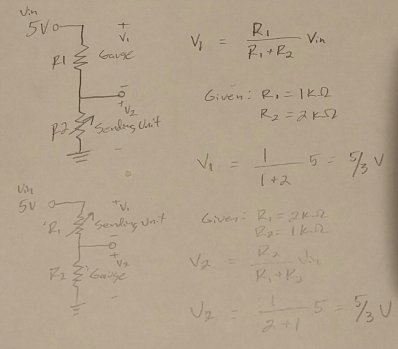 Vin
5V
+
V₁
R1 Gauge
-
+
V₂
R2 Sending Unit
-
V₁ = R₁ / R₁+R₂ Vin
Given: R₁ = 1kΩ
R₂ = 2kΩ
V₁ = 1 / 1+2 5 = 5/3 V
Vin
5V
+V₁
R₁ Sending Unit
-
+
V₂
R₂ Gauge
-
Given: R₁ = 2kΩ
R₂ = 1kΩ
V₂ = R₂ / R₁+R₂ Vin
V₂ = 1 / 2+1 5 = 5/3 V